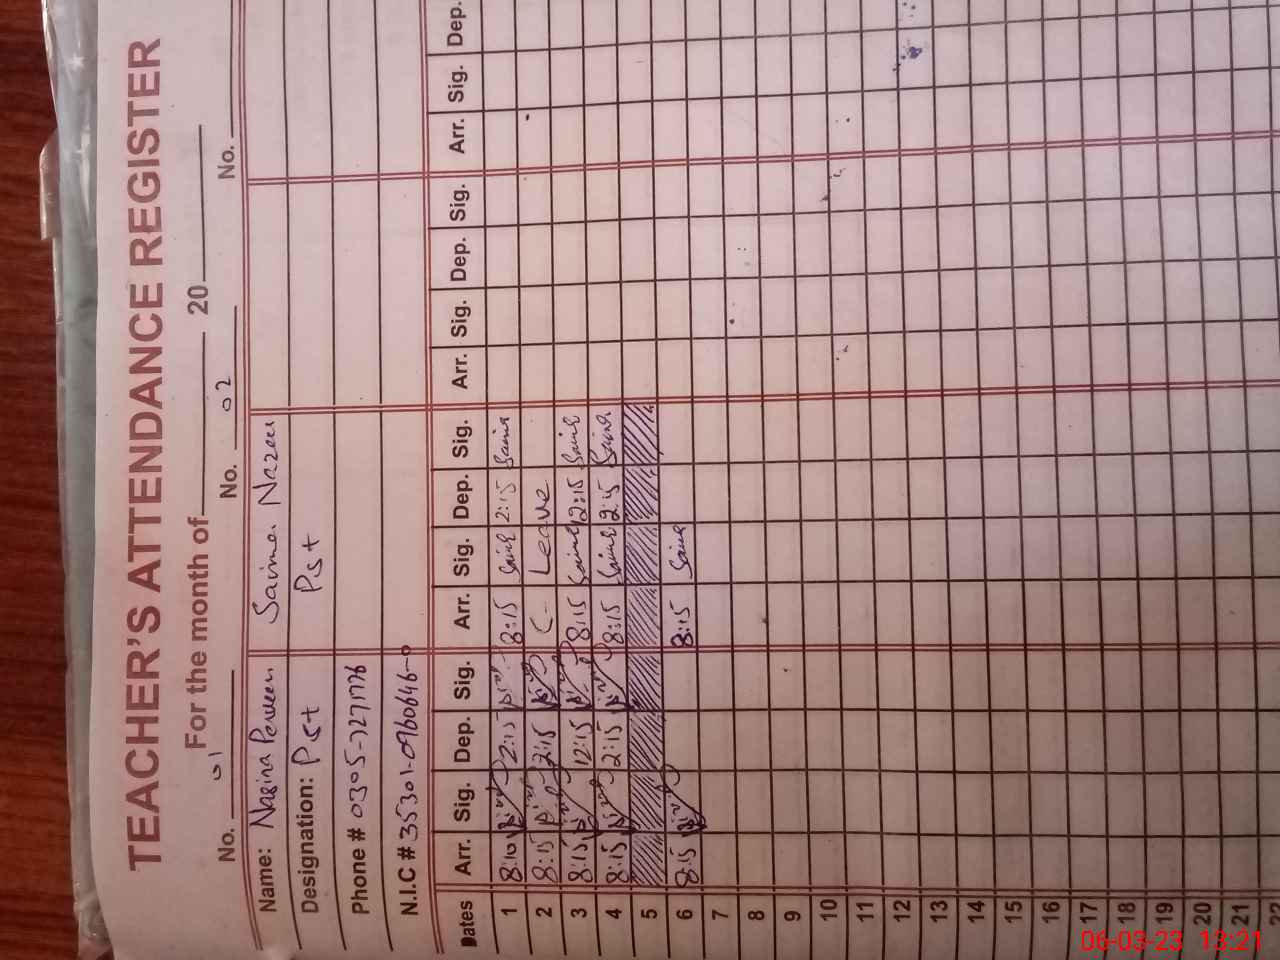 TEACHER'S ATTENDANCE REGISTER
For the month of 20
No. 01 No. 02 No.
Name: Nagina Perveen Saima Nazeer
Designation: Pst Pst
Phone # 0305-7271776
N.I.C # 35301-0960646-0
Dates Arr. Sig. Dep. Sig. Arr. Sig. Dep. Sig. Arr. Sig. Dep. Sig. Arr. Sig. Dep.
1 8:10 2:15 8:15 Saima 2:15 Saima
2 8:15 2:15 Leave
3 8:15 12:15 8:15 Saima 12:15 Saima
4 8:15 2:15 8:15 Saima 2:15 Saima
5
6 8:15 8:15 Saima
7
8
9
10
11
12
13
14
15
16
17
18
19
20
21
22
06-03-23 13:21